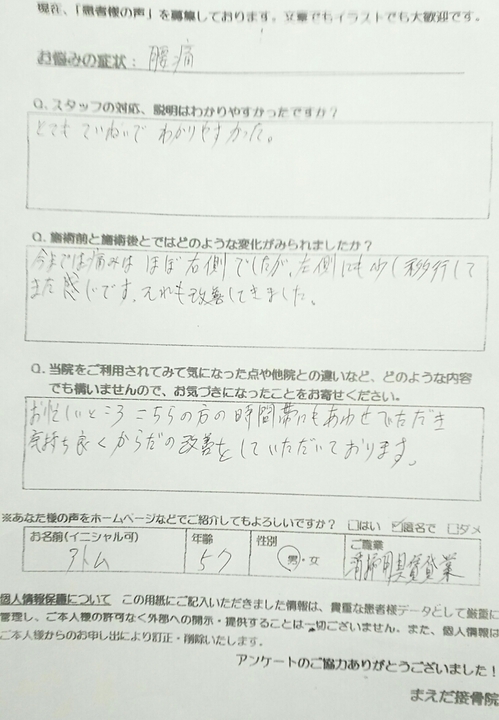 現在、「患者様の声」を募集しております。文章でもイラストでも大歓迎です。
お悩みの症状： 腰痛
Q. スタッフの対応、説明はわかりやすかったですか？
とてもていねいで わかりやすかった。
Q. 施術前と施術後とではどのような変化がみられましたか？
今までは痛みは ほぼ右側でしたが、左側にも少し移行して
きた感じです。それも改善してきました。
Q. 当院をご利用されてみて気になった点や他院との違いなど、どのような内容
でも構いませんので、お気づきになったことをお寄せください。
お忙しいところ こちらの方の時間帯にもあわせていただき
気持ち良くからだの改善をしていただいております。
※あなた様の声をホームページなどでご紹介してもよろしいですか？ □はい ☑匿名で □ダメ
お名前(イニシャル可) 年齢 性別 ご職業
アトム 57 男・女 清掃用具賃貸業
個人情報保護について この用紙にご記入いただきました情報は、貴重な患者様データとして厳重に
管理し、ご本人様の許可なく外部への開示・提供することは一切ございません。また、個人情報は
ご本人様からのお申し出により訂正・削除いたします。
アンケートのご協力ありがとうございました！
まえだ接骨院